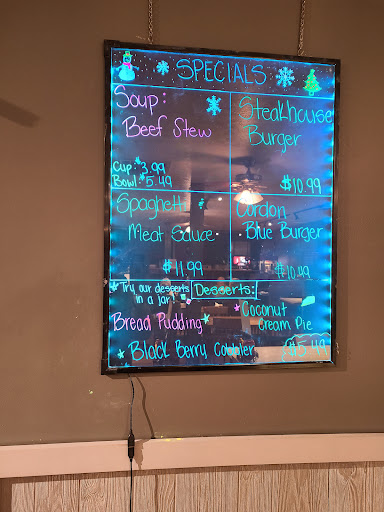 SPECIALS
Soup:
Beef Stew
Cup: $3.99
Bowl: $5.49
Steakhouse
Burger
$10.99
Spaghetti
Meat Sauce
$11.99
Cordon
Blue Burger
$10.49
Try our desserts
in a jar!
Desserts:
Bread Pudding
Coconut
Cream Pie
Black Berry Cobbler
$5.49